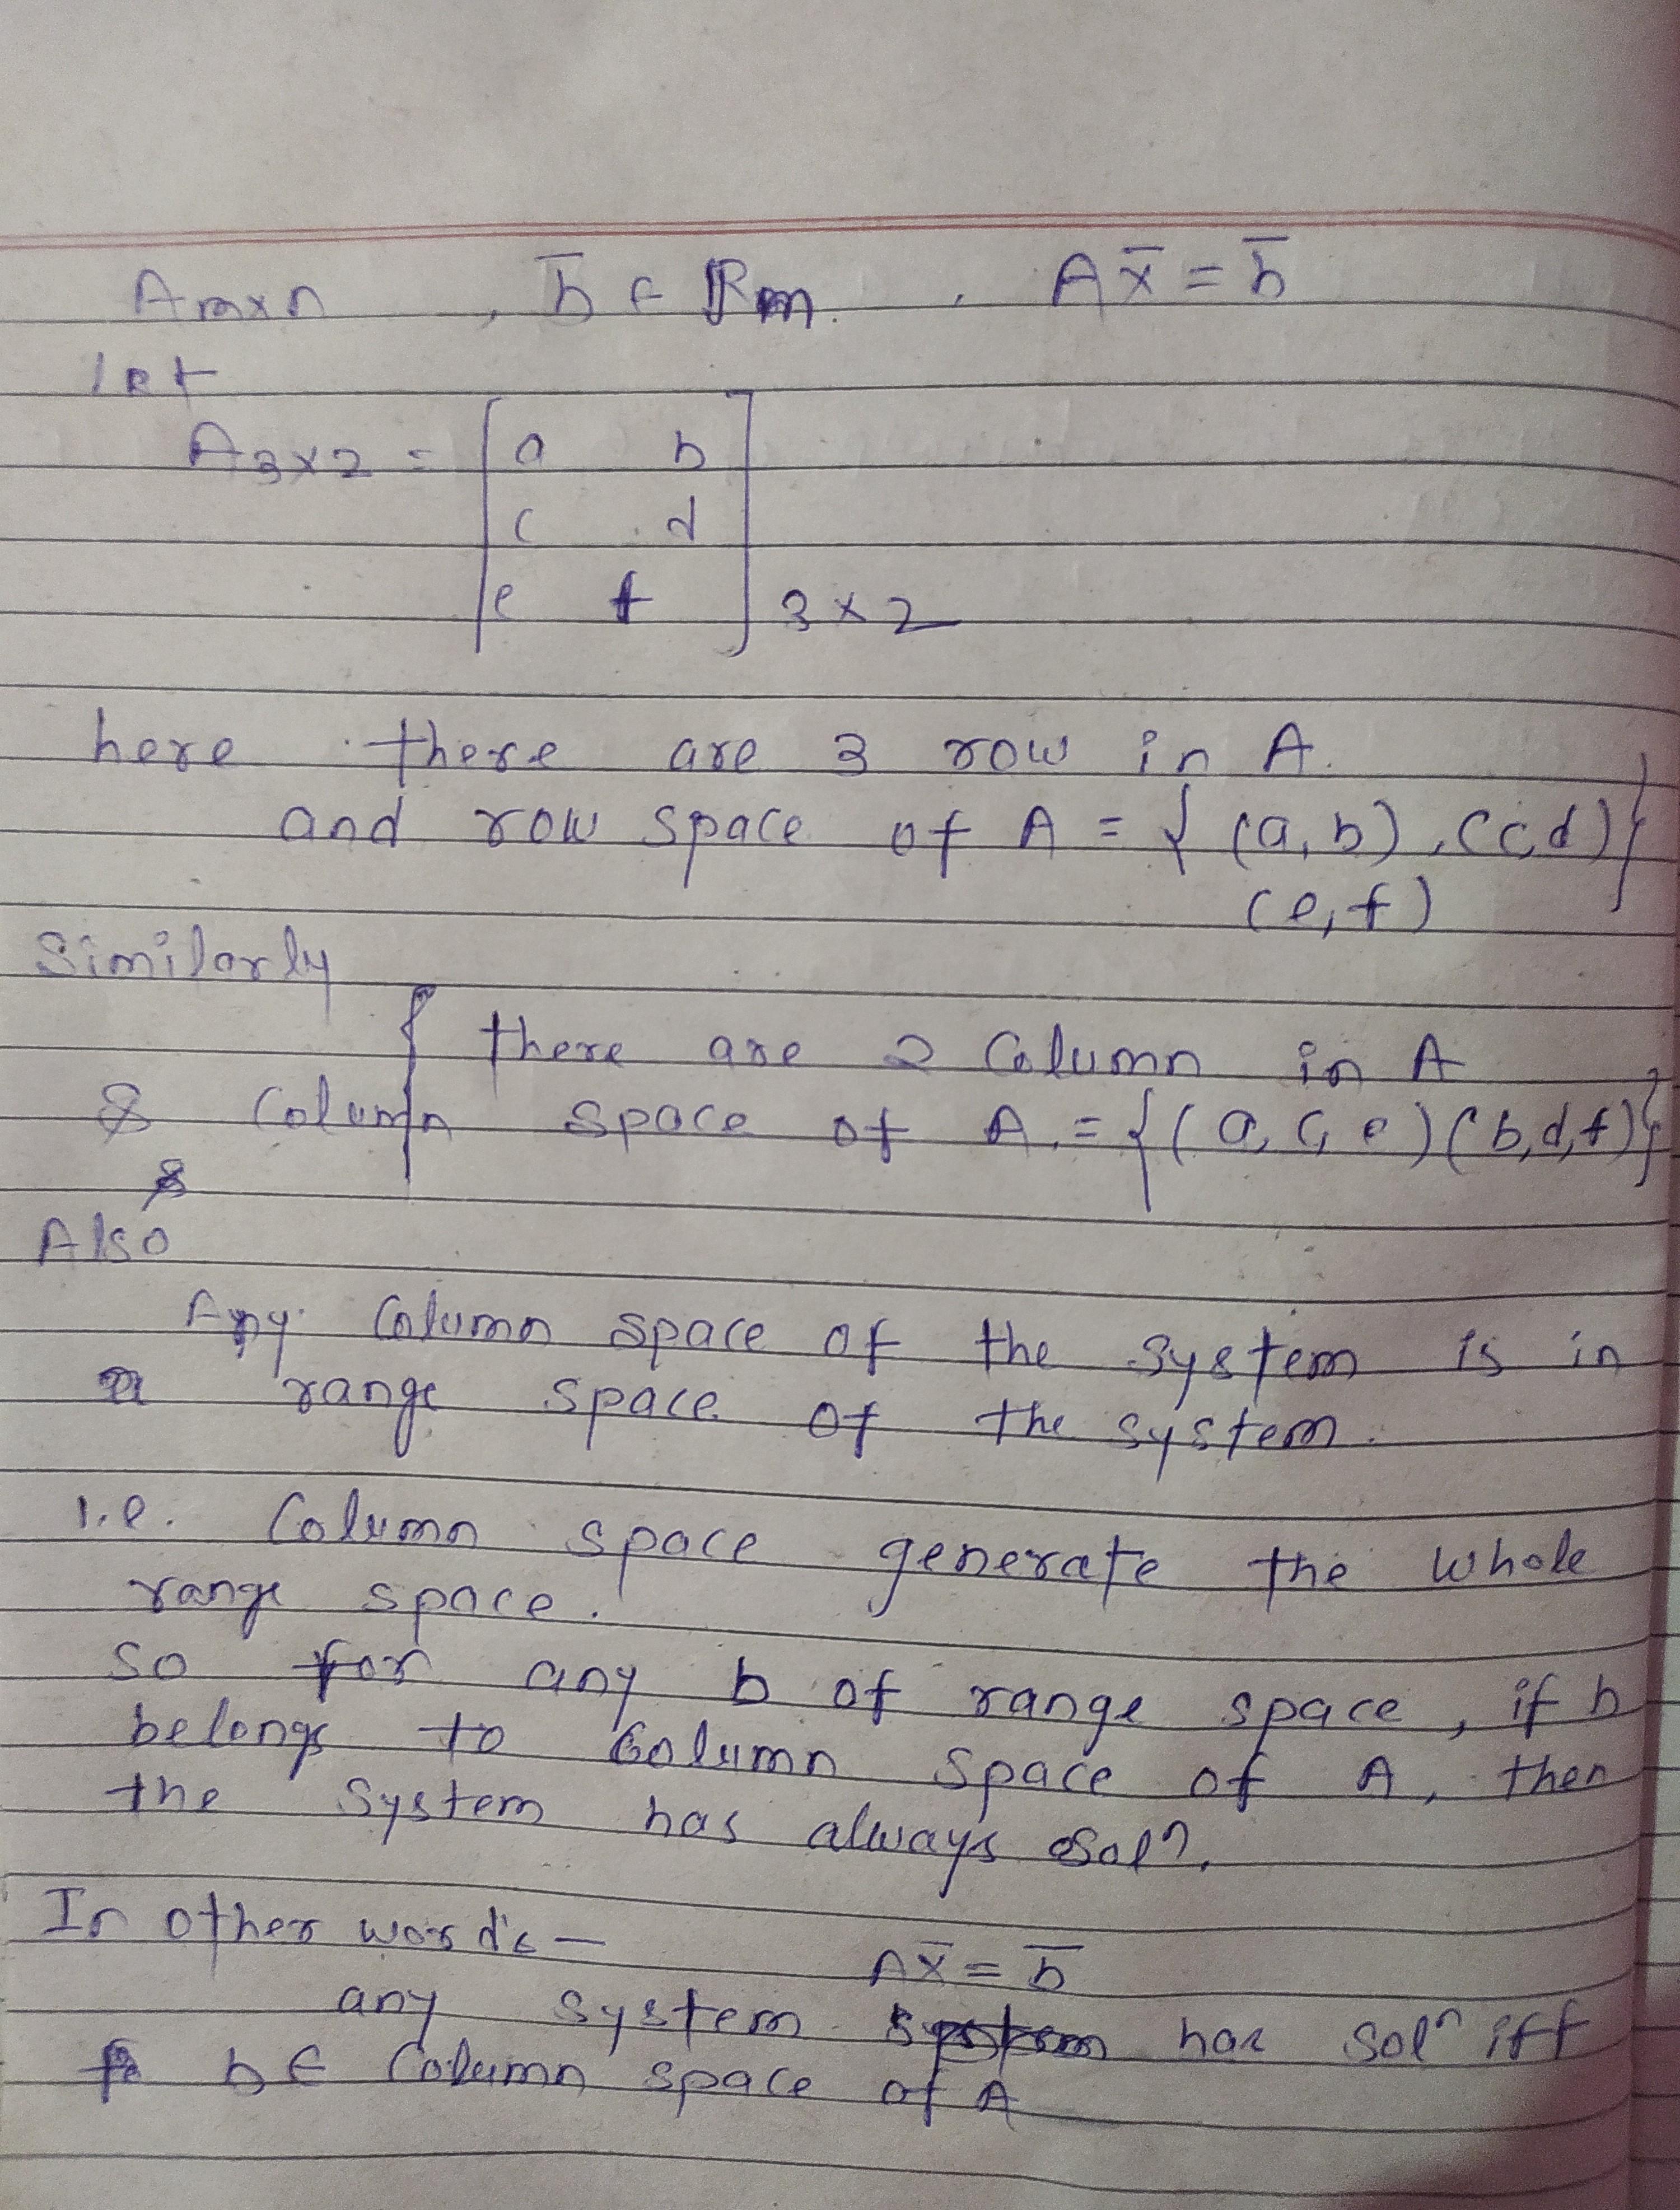 A m×n , b̅ ∈ ℝm. , Ax̅ = b̅
let
A3×2 = [ a b
c d
e f ] 3×2
here there are 3 row in A.
and row space of A = { (a, b), (c, d)
(e, f) }
Similarly
{ there are 2 Column in A
& Column space of A = {(a, c, e) (b, d, f)}
Also
Any Column space of the system is in
range space of the system.
i.e. Column space generate the whole
range space.
so for any b of range space, if b
belongs to Column space of A, then
the system has always solⁿ.
In other word's —
Ax̅ = b̅
any system has solⁿ iff
b ∈ Column space of A